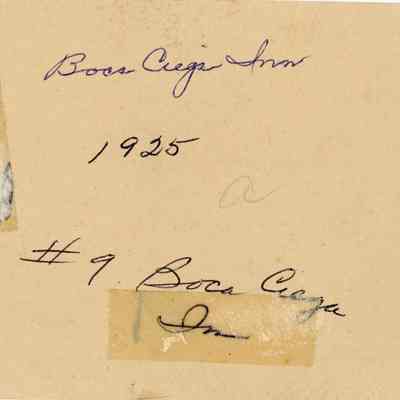 Boca Ciega Inn
1925
a
#9 Boca Ciega
Inn